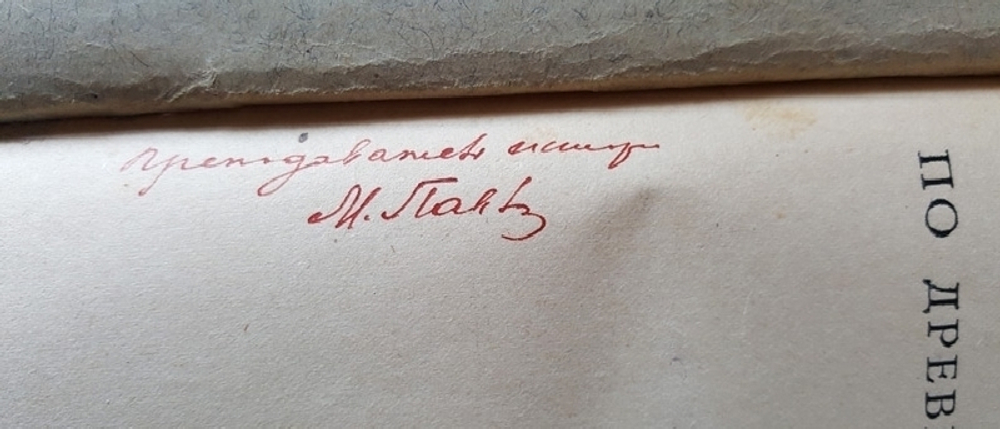 преподаватель истор
М. Павл
ПО ДРЕВ